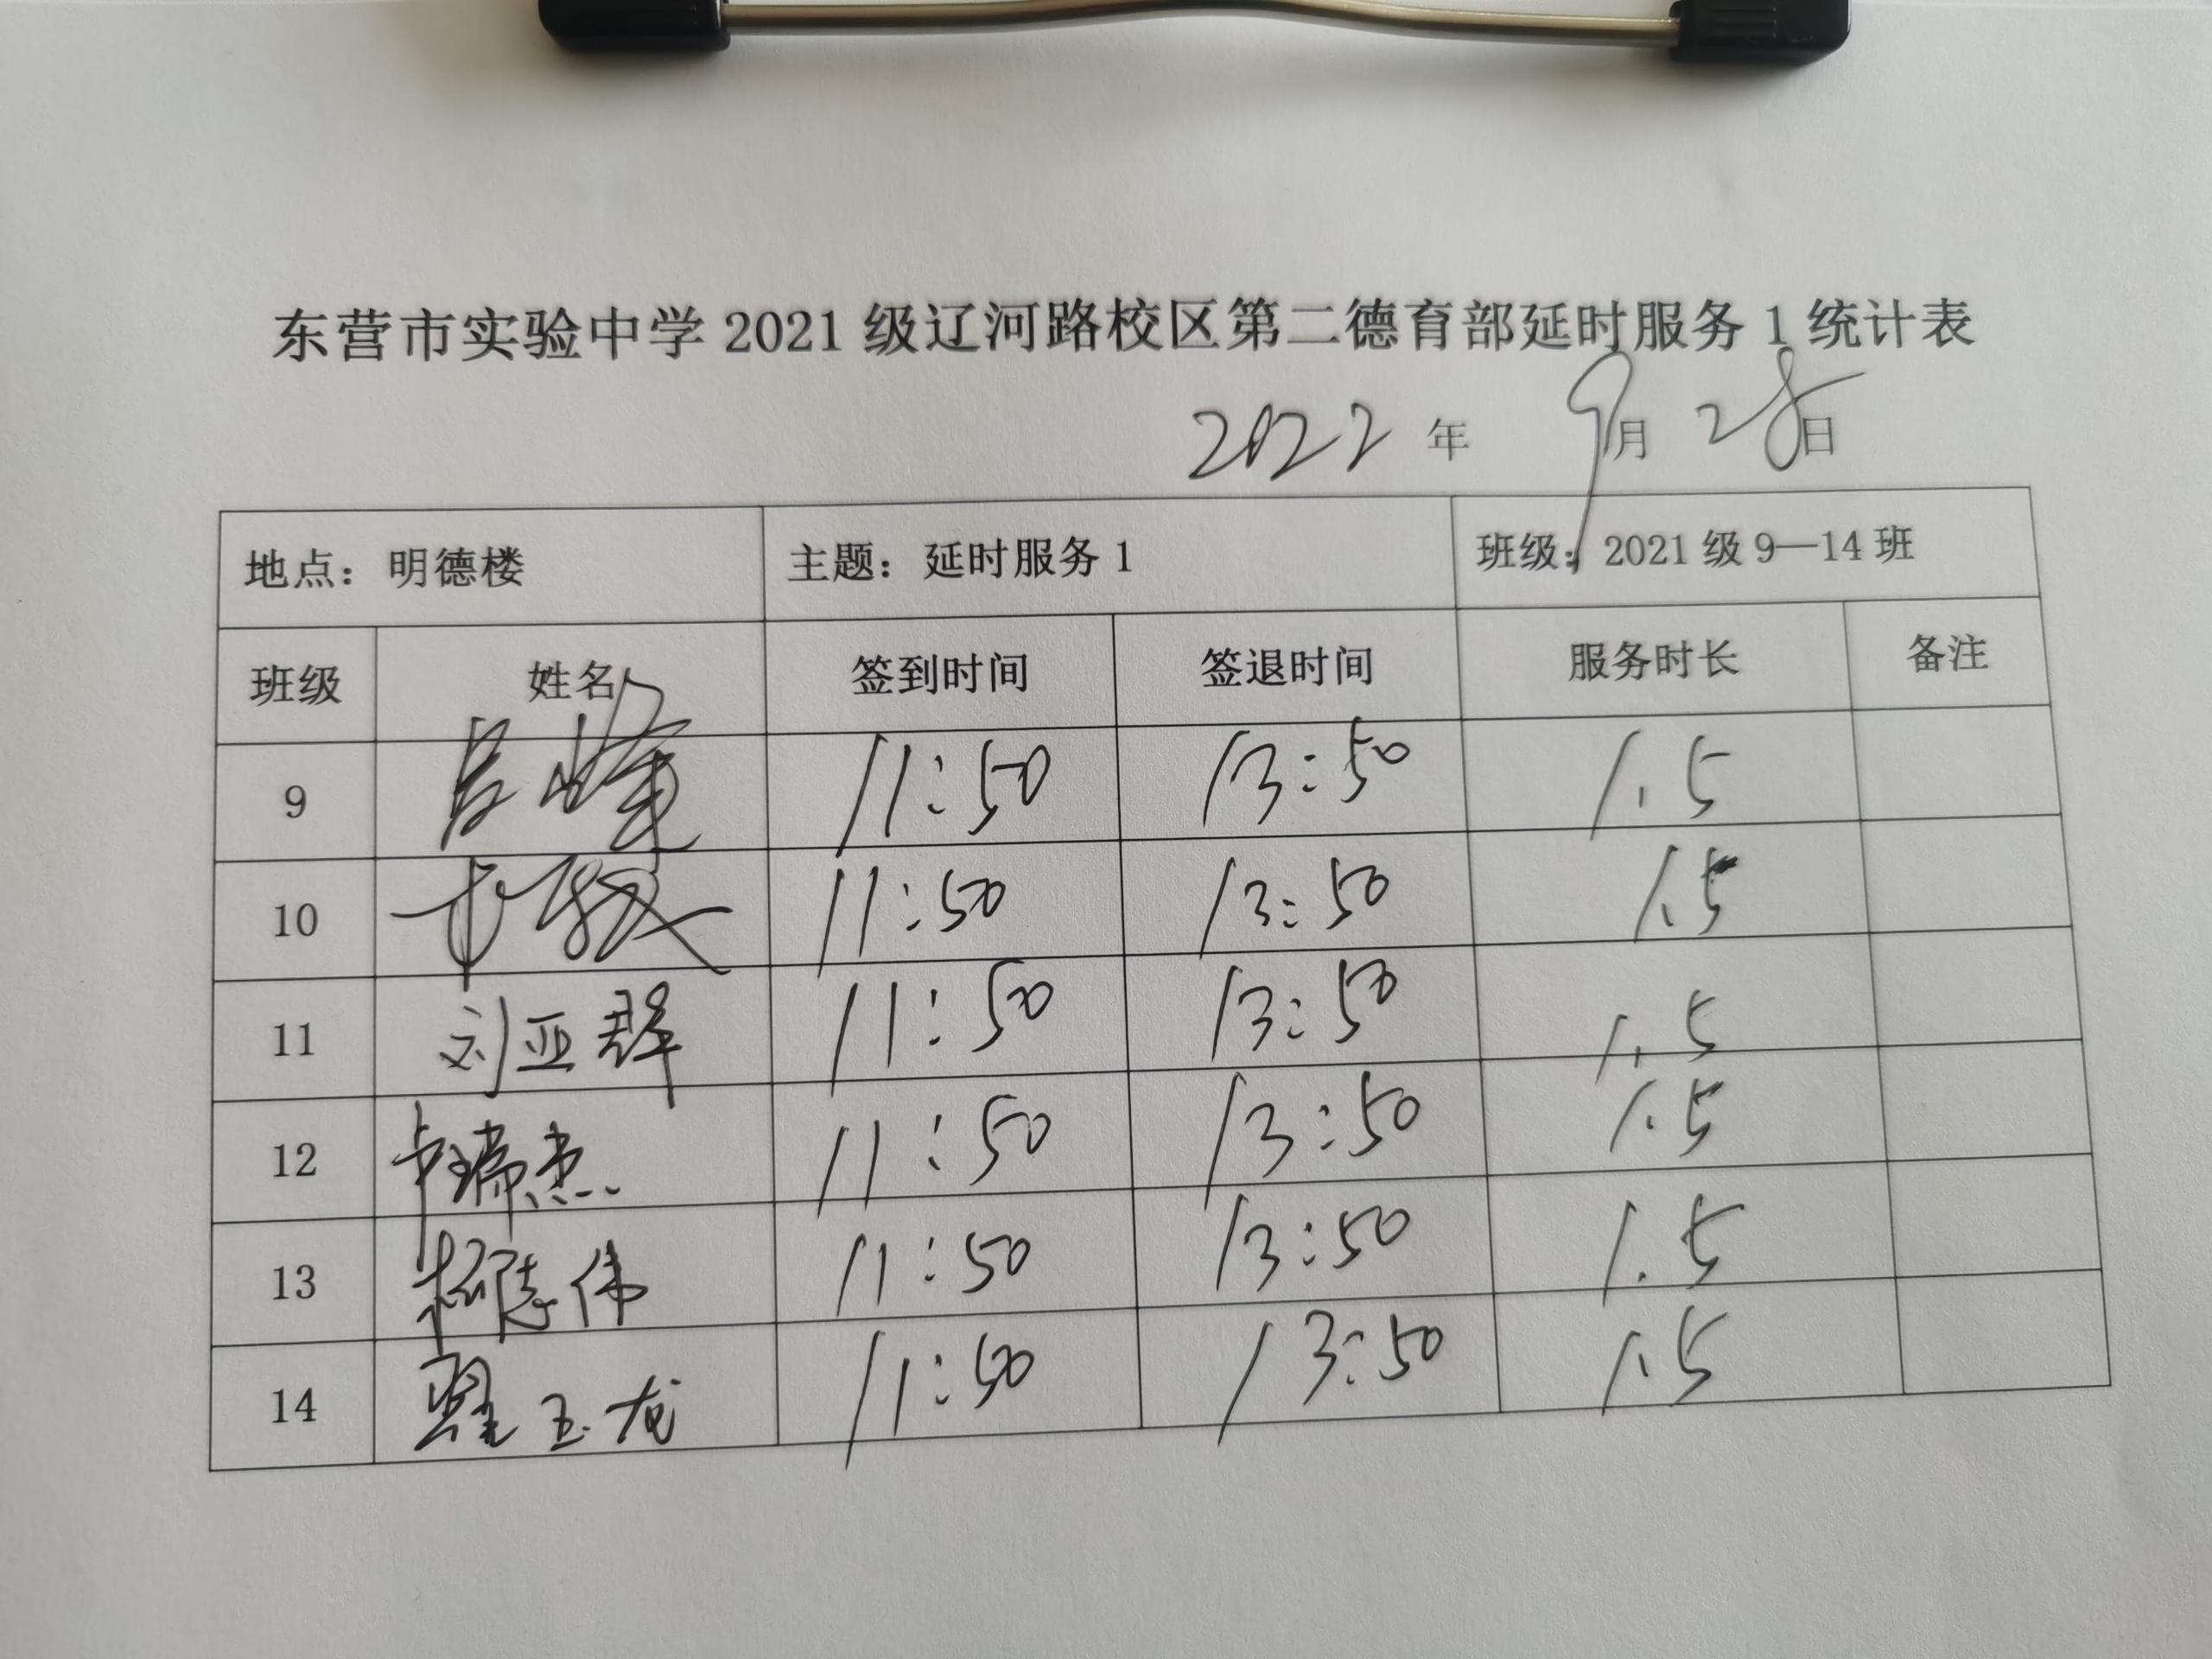 东营市实验中学2021级辽河路校区第二德育部延时服务1统计表
2022年 9月28日
地点：明德楼 主题：延时服务1 班级：2021级9—14班
班级 姓名 签到时间 签退时间 服务时长 备注
9 11:50 13:50 1.5
10 11:50 13:50 1.5
11 刘亚群 11:50 13:50 1.5
12 瑞杰 11:50 13:50 1.5
13 志伟 11:50 13:50 1.5
14 翟玉龙 11:50 13:50 1.5